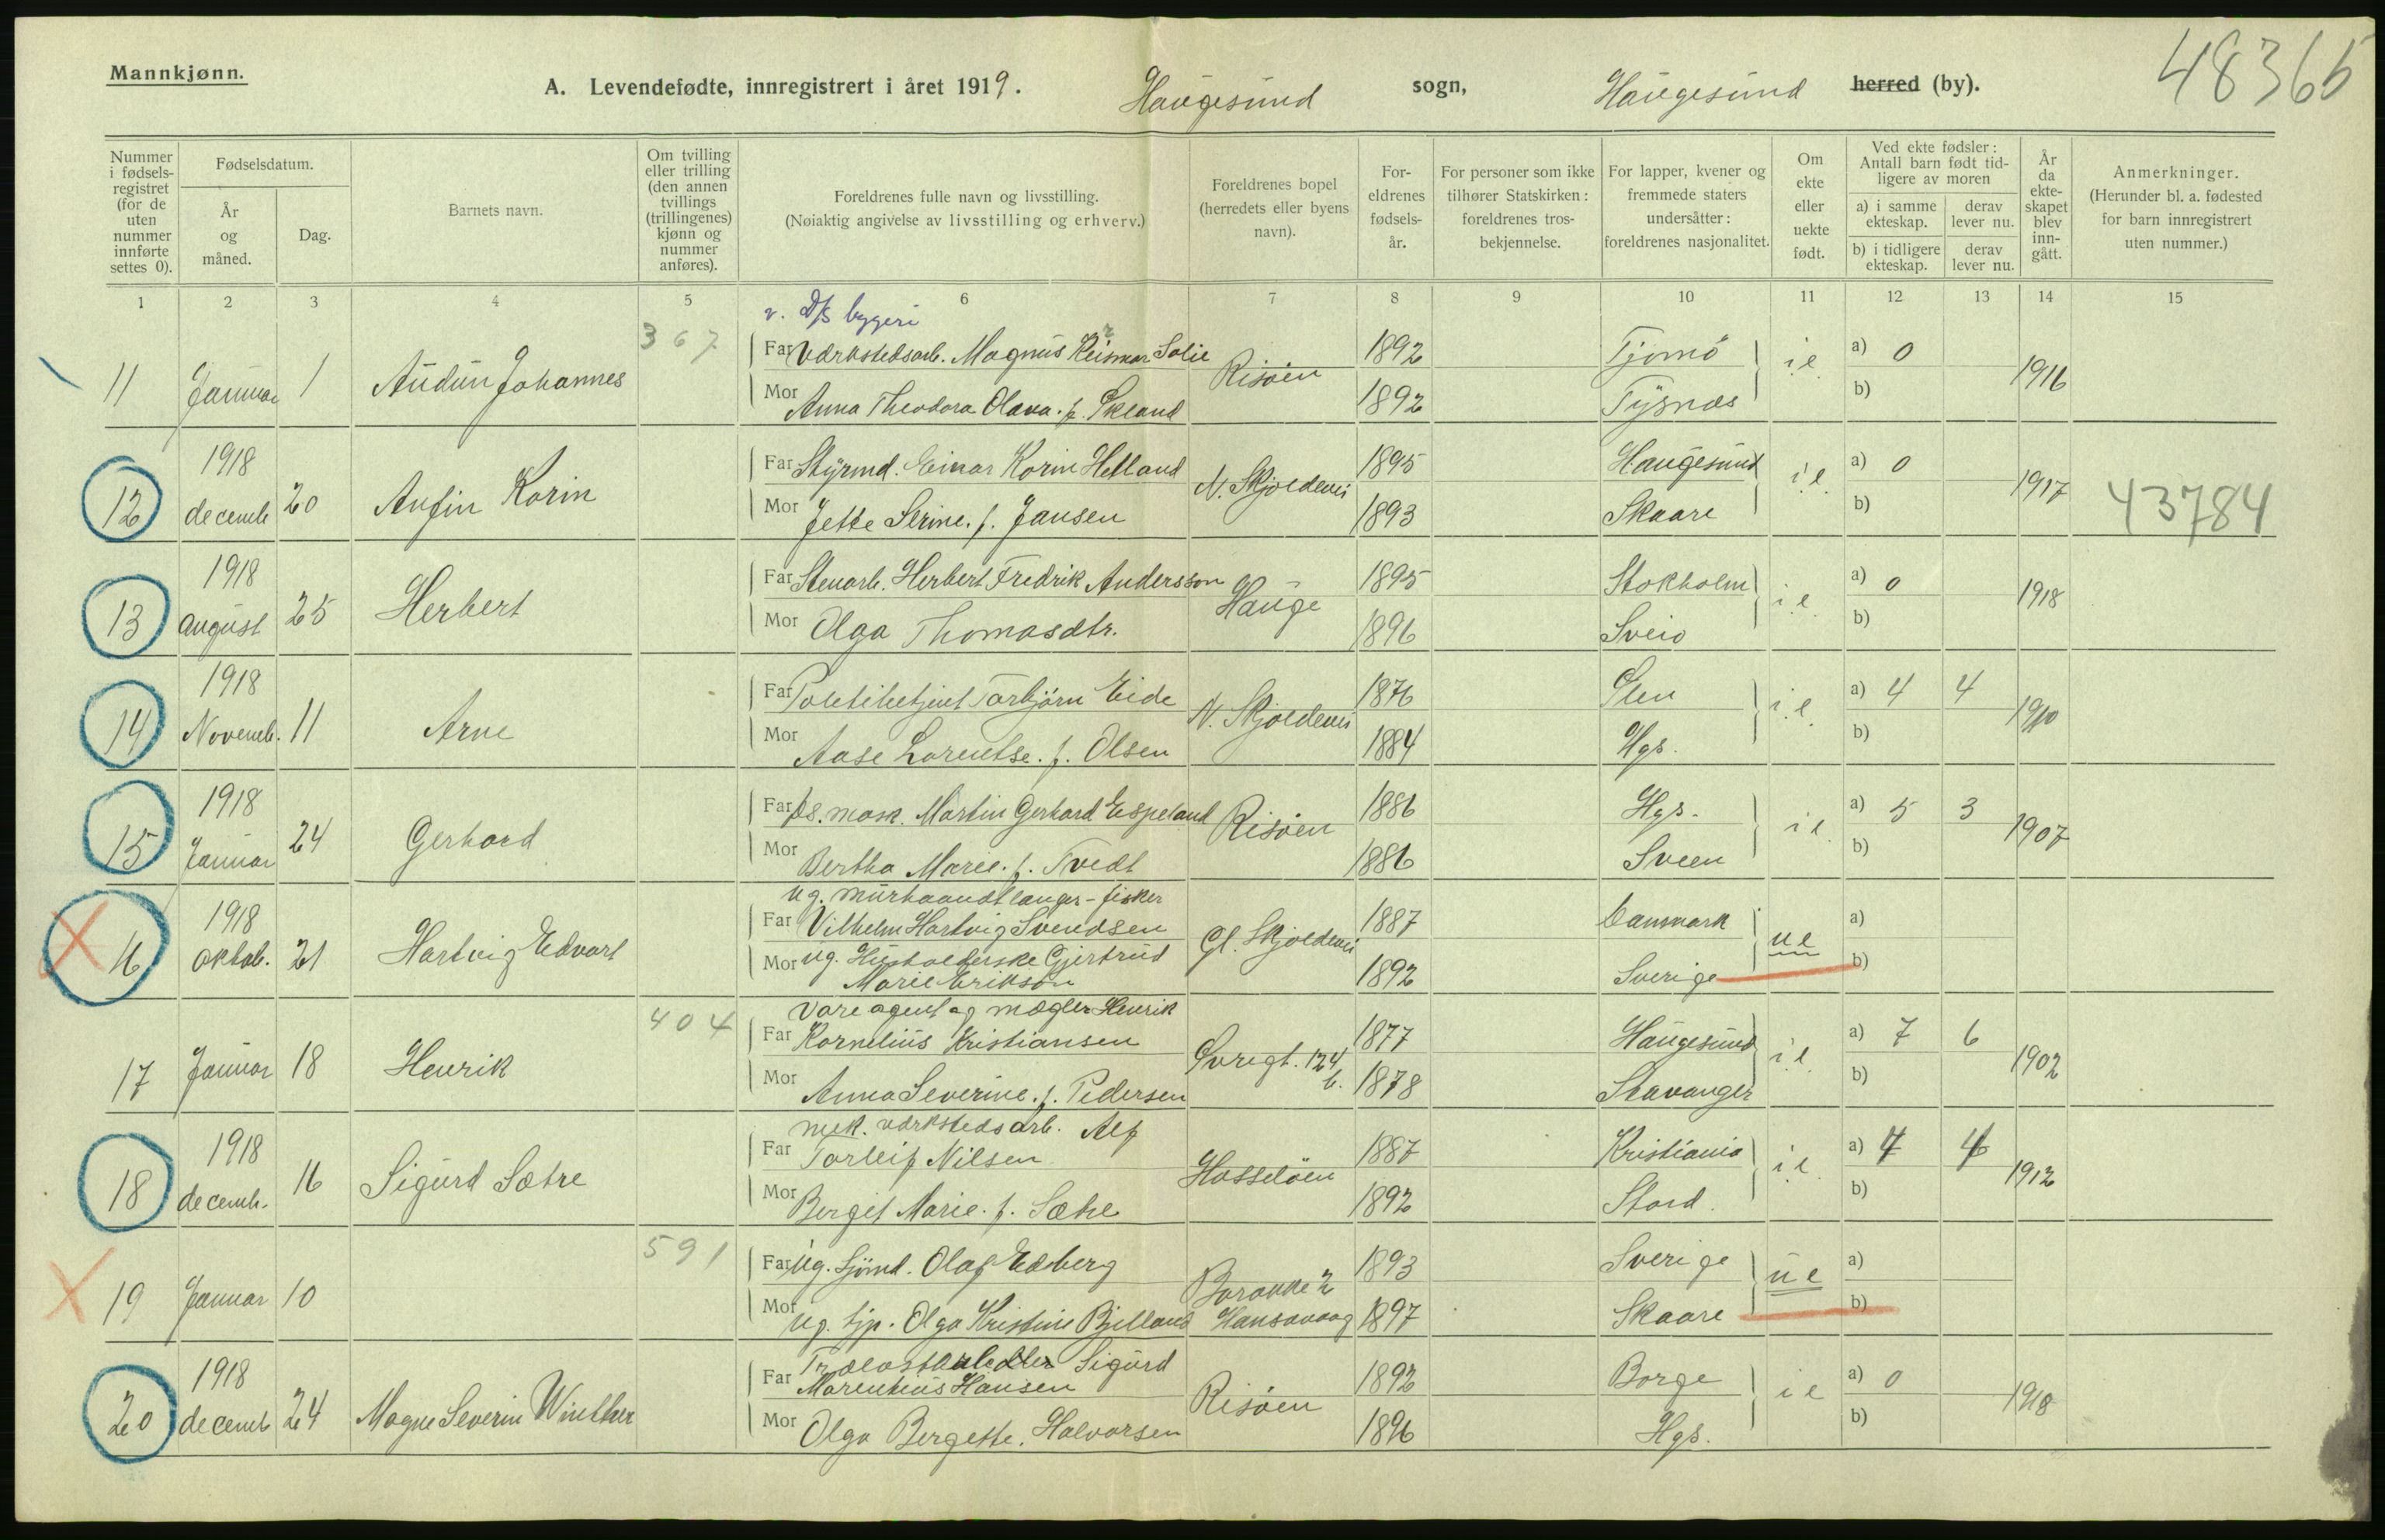 Mannkjønn.
A. Levendefødte, innregistrert i året 1919. Haugesund sogn, Haugesund herred (by).
48365
Nummer i fødsels-registret (for de uten nummer innførte settes 0).
Fødselsdatum.
År og måned.
Dag.
Barnets navn.
Om tvilling eller trilling (den annen tvillings (trillingenes) kjønn og nummer anføres).
Foreldrenes fulle navn og livsstilling.
(Nøiaktig angivelse av livsstilling og erhverv.)
Foreldrenes bopel (herredets eller byens navn).
For-eldrenes fødsels-år.
For personer som ikke tilhører Statskirken: foreldrenes tros-bekjennelse.
For lapper, kvener og fremmede staters undersåtter: foreldrenes nasjonalitet.
Om ekte eller uekte født.
Ved ekte fødsler: Antall barn født tid-ligere av moren
a) i samme ekteskap. derav lever nu.
b) i tidligere ekteskap. derav lever nu.
År da ekte-skapet blev inn-gått.
Anmerkninger.
(Herunder bl. a. fødested for barn innregistrert uten nummer.)
1 2 3 4 5 6 7 8 9 10 11 12 13 14 15
v. D/S byggeri
367
Far Værkstedsarb. Magnus Solie 1892 Tjomö a) 0
11 Januar 1 Audun Johannes Risöen i e 1916
Mor Anna Theodora Olava. f. Økland 1892 Tysnæs b)
1918
Far Styrmd. Einar Korin Hetland 1895 Haugesund a) 0
12 decemb 20 Anfin Korin N. Skjoldevei i e 1917 43784
Mor Jette Serine. f. Jansen 1893 Skaare b)
1918
Far Stenarb. Herbert Fredrik Andersson 1895 Stokholm a) 0
13 august 25 Herbert Hauge i e 1918
Mor Olga Thomasdtr. 1896 Sveio b)
1918
Far Torbjörn Eide 1876 a) 4 4
14 Novemb. 11 Arne N. Skjoldevei i e 1910
Mor Aase Lorentse. f. Olsen 1884 Hgs. b)
1918
Far Martin Gerhard Espeland 1886 Hgs. a) 5 3
15 Januar 24 Gerhard Risöen i e 1907
Mor Bertha Marie. f. Tvedt 1886 Sveen b)
ug. murhaandtlanger - fisker
1918
Far Vilhelm Hartvig Svendsen 1887 Danmark a)
16 oktob. 21 Hartvig Edvart Gl. Skjoldevei u e
Mor ug. Husholderske Gjertrud Marie Erikson 1892 Sverige b)
404
Vareagent og mægler Henrik
Far Kornelius Kristiansen 1877 Haugesund a) 7 6
17 Januar 18 Henrik 124 b. i e 1902
Mor Anna Severine. f. Pedersen 1878 Stavanger b)
mek. værkstedsarb. Alf
1918
Far Torleif Nilsen 1887 Kristiania a) 4 4
18 decemb. 16 Sigurd Sætre Hasselöen i e 1912
Mor Bergit Marie. f. Sætre 1892 Stord. b)
591
Far ug. Sjömd. Olaf Edberg 1893 Sverige a)
19 Januar 10 Barakke 2 Hansavaag u e
Mor ug. tjp. Olga Kristine Bjelland 1897 Skaare b)
1918
Far Sigurd Marentius Hansen 1892 Borge a) 0
20 decemb 24 Magne Severin Winther Risöen i e 1918
Mor Olga Bergette. Halvorsen 1896 Hgs. b)